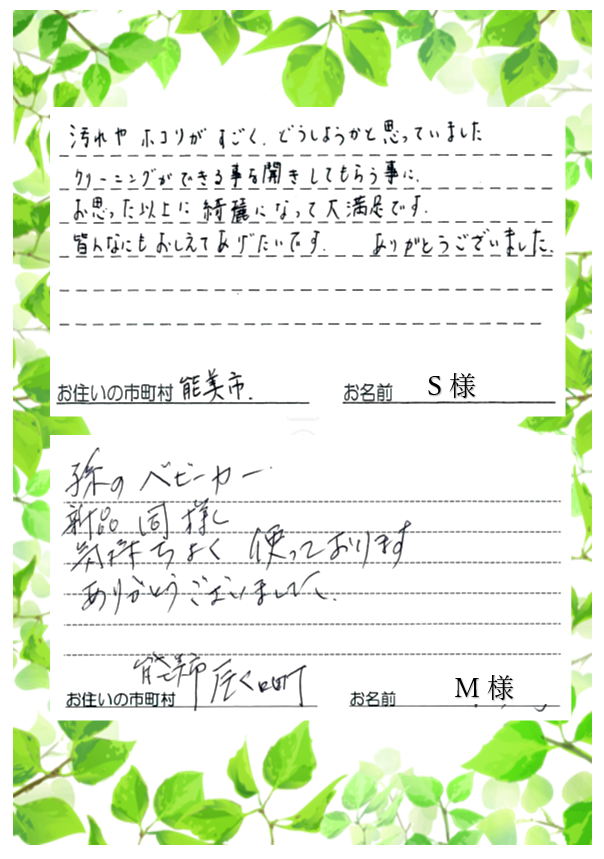 汚れや ホコリが すごく、どうしようかと思っていました
クリーニングができる事を聞きしてもらう事に、
お思った以上に 綺麗になって大満足です。
皆んなにもおしえてあげたいです。 ありがとうございました。
お住いの市町村 能美市. お名前 S 様
孫の ベビーカー
新品 同様に
気持ちよく 使っております
ありがとうございました。
お住いの市町村 能美市 辰口町 お名前 M 様